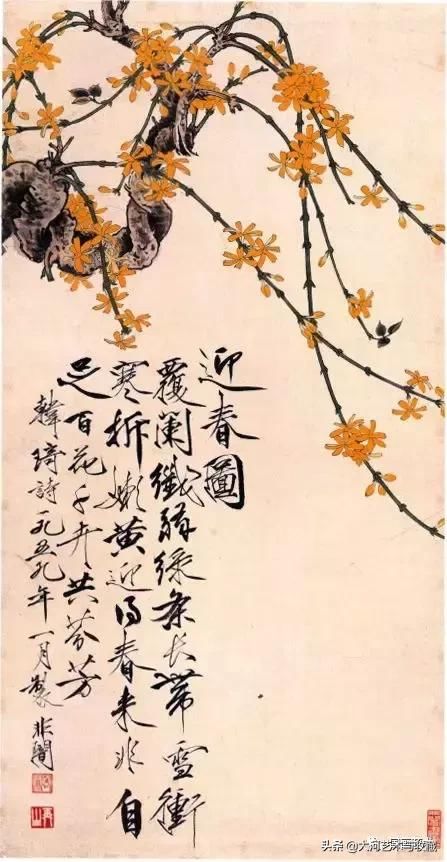 迎春圖
覆闌纖弱綠条长帶雪衝
寒折嫩黄迎得春来非自
足百花千卉共芬芳
韓琦詩一九五九年一月製 非闇
头条 @大河艺术收藏